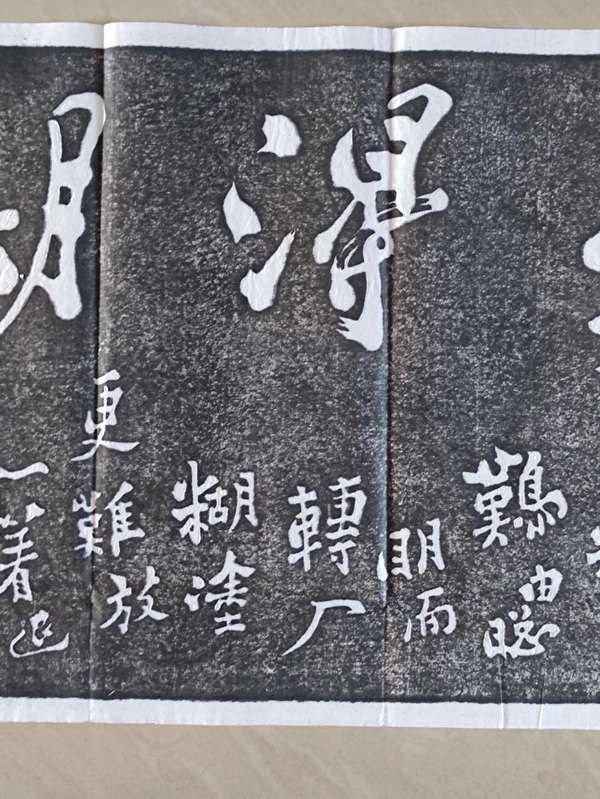 得
難由聰
明而
轉入
糊塗
更難放
一著退